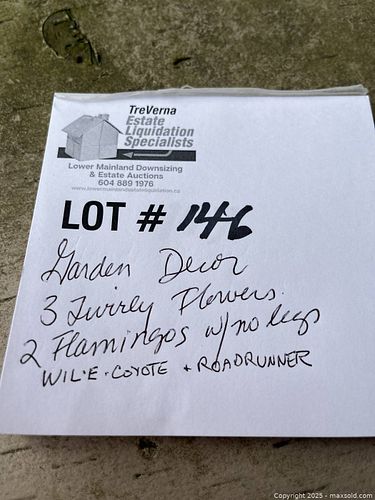 TreVerna
Estate
Liquidation
Specialists
Lower Mainland Downsizing
& Estate Auctions
604 889 1976
www.lowermainlandestateliquidation.ca
LOT # 146
Garden Decor
3 Twirley Flowers.
2 Flamingos w/ no legs
WIL·E·COYOTE + ROADRUNNER
Copyright 2025 - maxsold.com